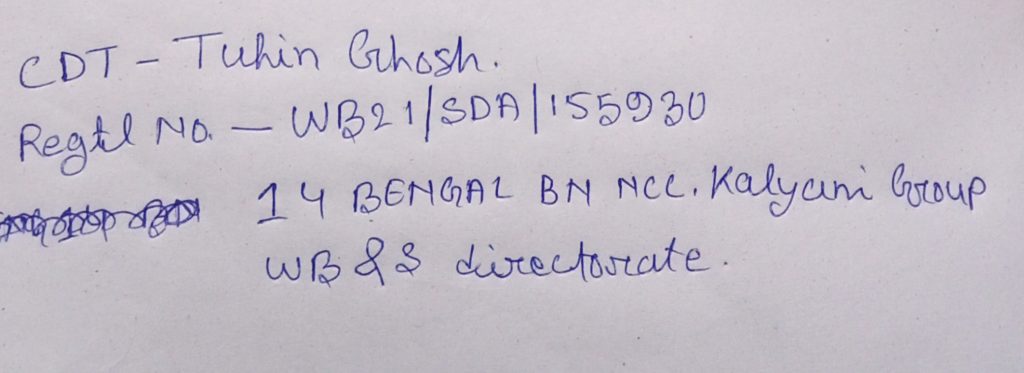 CDT - Tuhin Ghosh.
Regtl No. - WB21/SDA/155930
14 BENGAL BN NCC. Kalyani Group
WB & S directorate.